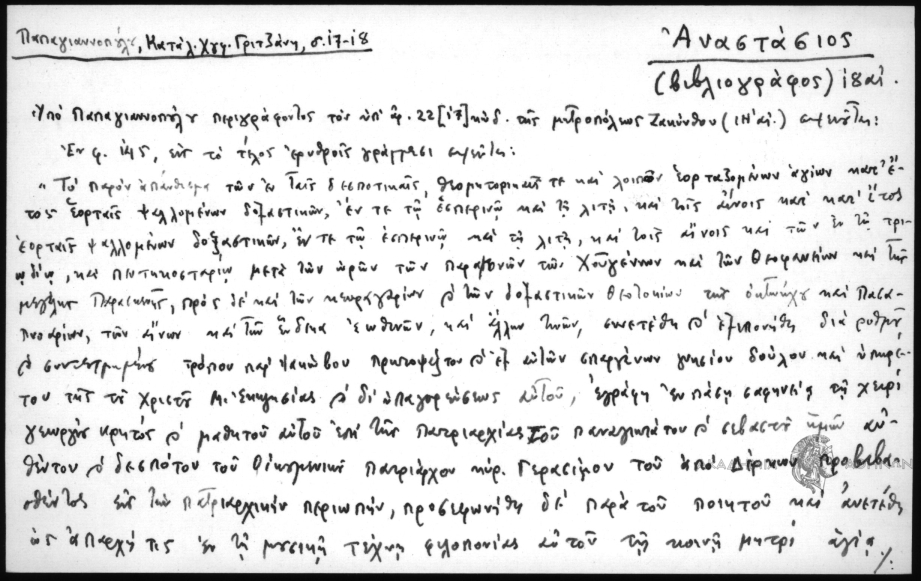 Παπαγιαννοπούλου, Κατάλ. Χφφ. Γριτζάνη, σ. 17-18
Ἀναστάσιος
(βιβλιογράφος) ιθαί.
Ὑπό Παπαγιαννοπούλου περιγράφοντος τόν ὑπ' ἀρ. 22 [17] κώδ. τῆς μητροπόλεως Ζακύνθου (ΙΗ' αἰ.)
Ἐν φ. 145, εἰς τό τέλος ἐρυθροῖς γράμμασι
" Τό παρόν ἀπάνθισμα τῶν ἐν ταῖς δεσποτικαῖς, θεομητορικαῖς τε καί λοιπῶν ἑορταζομένων ἁγίων κατ' ἔ-
τος ἑορταῖς ψαλλομένων δοξαστικῶν, ἔν τε τῷ ἑσπερινῷ καί τῇ λιτῇ, καί τοῖς αἴνοις καί κατ' ἔτος
ἑορταῖς ψαλλομένων δοξαστικῶν, ἔν τε τῷ ἑσπερινῷ καί τῇ λιτῇ, καί τοῖς αἴνοις καί τῶν ἐν τῷ τρι-
ῳδίῳ, καί πεντηκοσταρίῳ μετά τῶν ὡρῶν τῶν παραμονῶν τῶν Χουγέννων καί τῶν Θεοφανείων καί τῆς
μεγάλης Παρασκευῆς, πρός δέ καί τῶν κεκραγαρίων δοξαστικῶν θεοτοκίων τῆς ὀκτωήχου καί Πασα-
πνοαρίων, τῶν αἴνων καί τῶν ἕνδεκα ἑωθινῶν, καί ἄλλων τινῶν, συνετέθη ἐξεπονήθη διά ρυθμοῦ
συντετμημένου τρόπου παρ' Ἰακώβου πρωτοψάλτου ἐξ αὐτῶν σπαργάνων γνησίου δούλου καί ὑπηρέ-
του τῆς τοῦ Χριστοῦ Μ. Ἐκκλησίας δι' ὑπαγορεύσεως αὐτοῦ, ἐγράφη ἐν πάσῃ σαφηνείᾳ τῇ χειρί
γεωργίου κρητός μαθητοῦ αὐτοῦ ἐπί τῆς Πατριαρχίας τοῦ παναγιωτάτου σεβαστοῦ ἡμῶν αὐ-
θέντου δεσπότου τοῦ Οἰκουμενικοῦ Πατριάρχου κύρ. Γερασίμου τοῦ ἀπό Δέρκων προβιβα-
σθέντος εἰς τήν πατριαρχικήν περιωπήν, προσεφωνήθη δέ παρά τοῦ ποιητοῦ καί ἀνετέθη
ὡς ἀπαρχή τις ἐν τῇ μουσικῇ τέχνῃ φιλοπονίας αὐτοῦ τῇ κοινῇ μητρί ἁγίᾳ